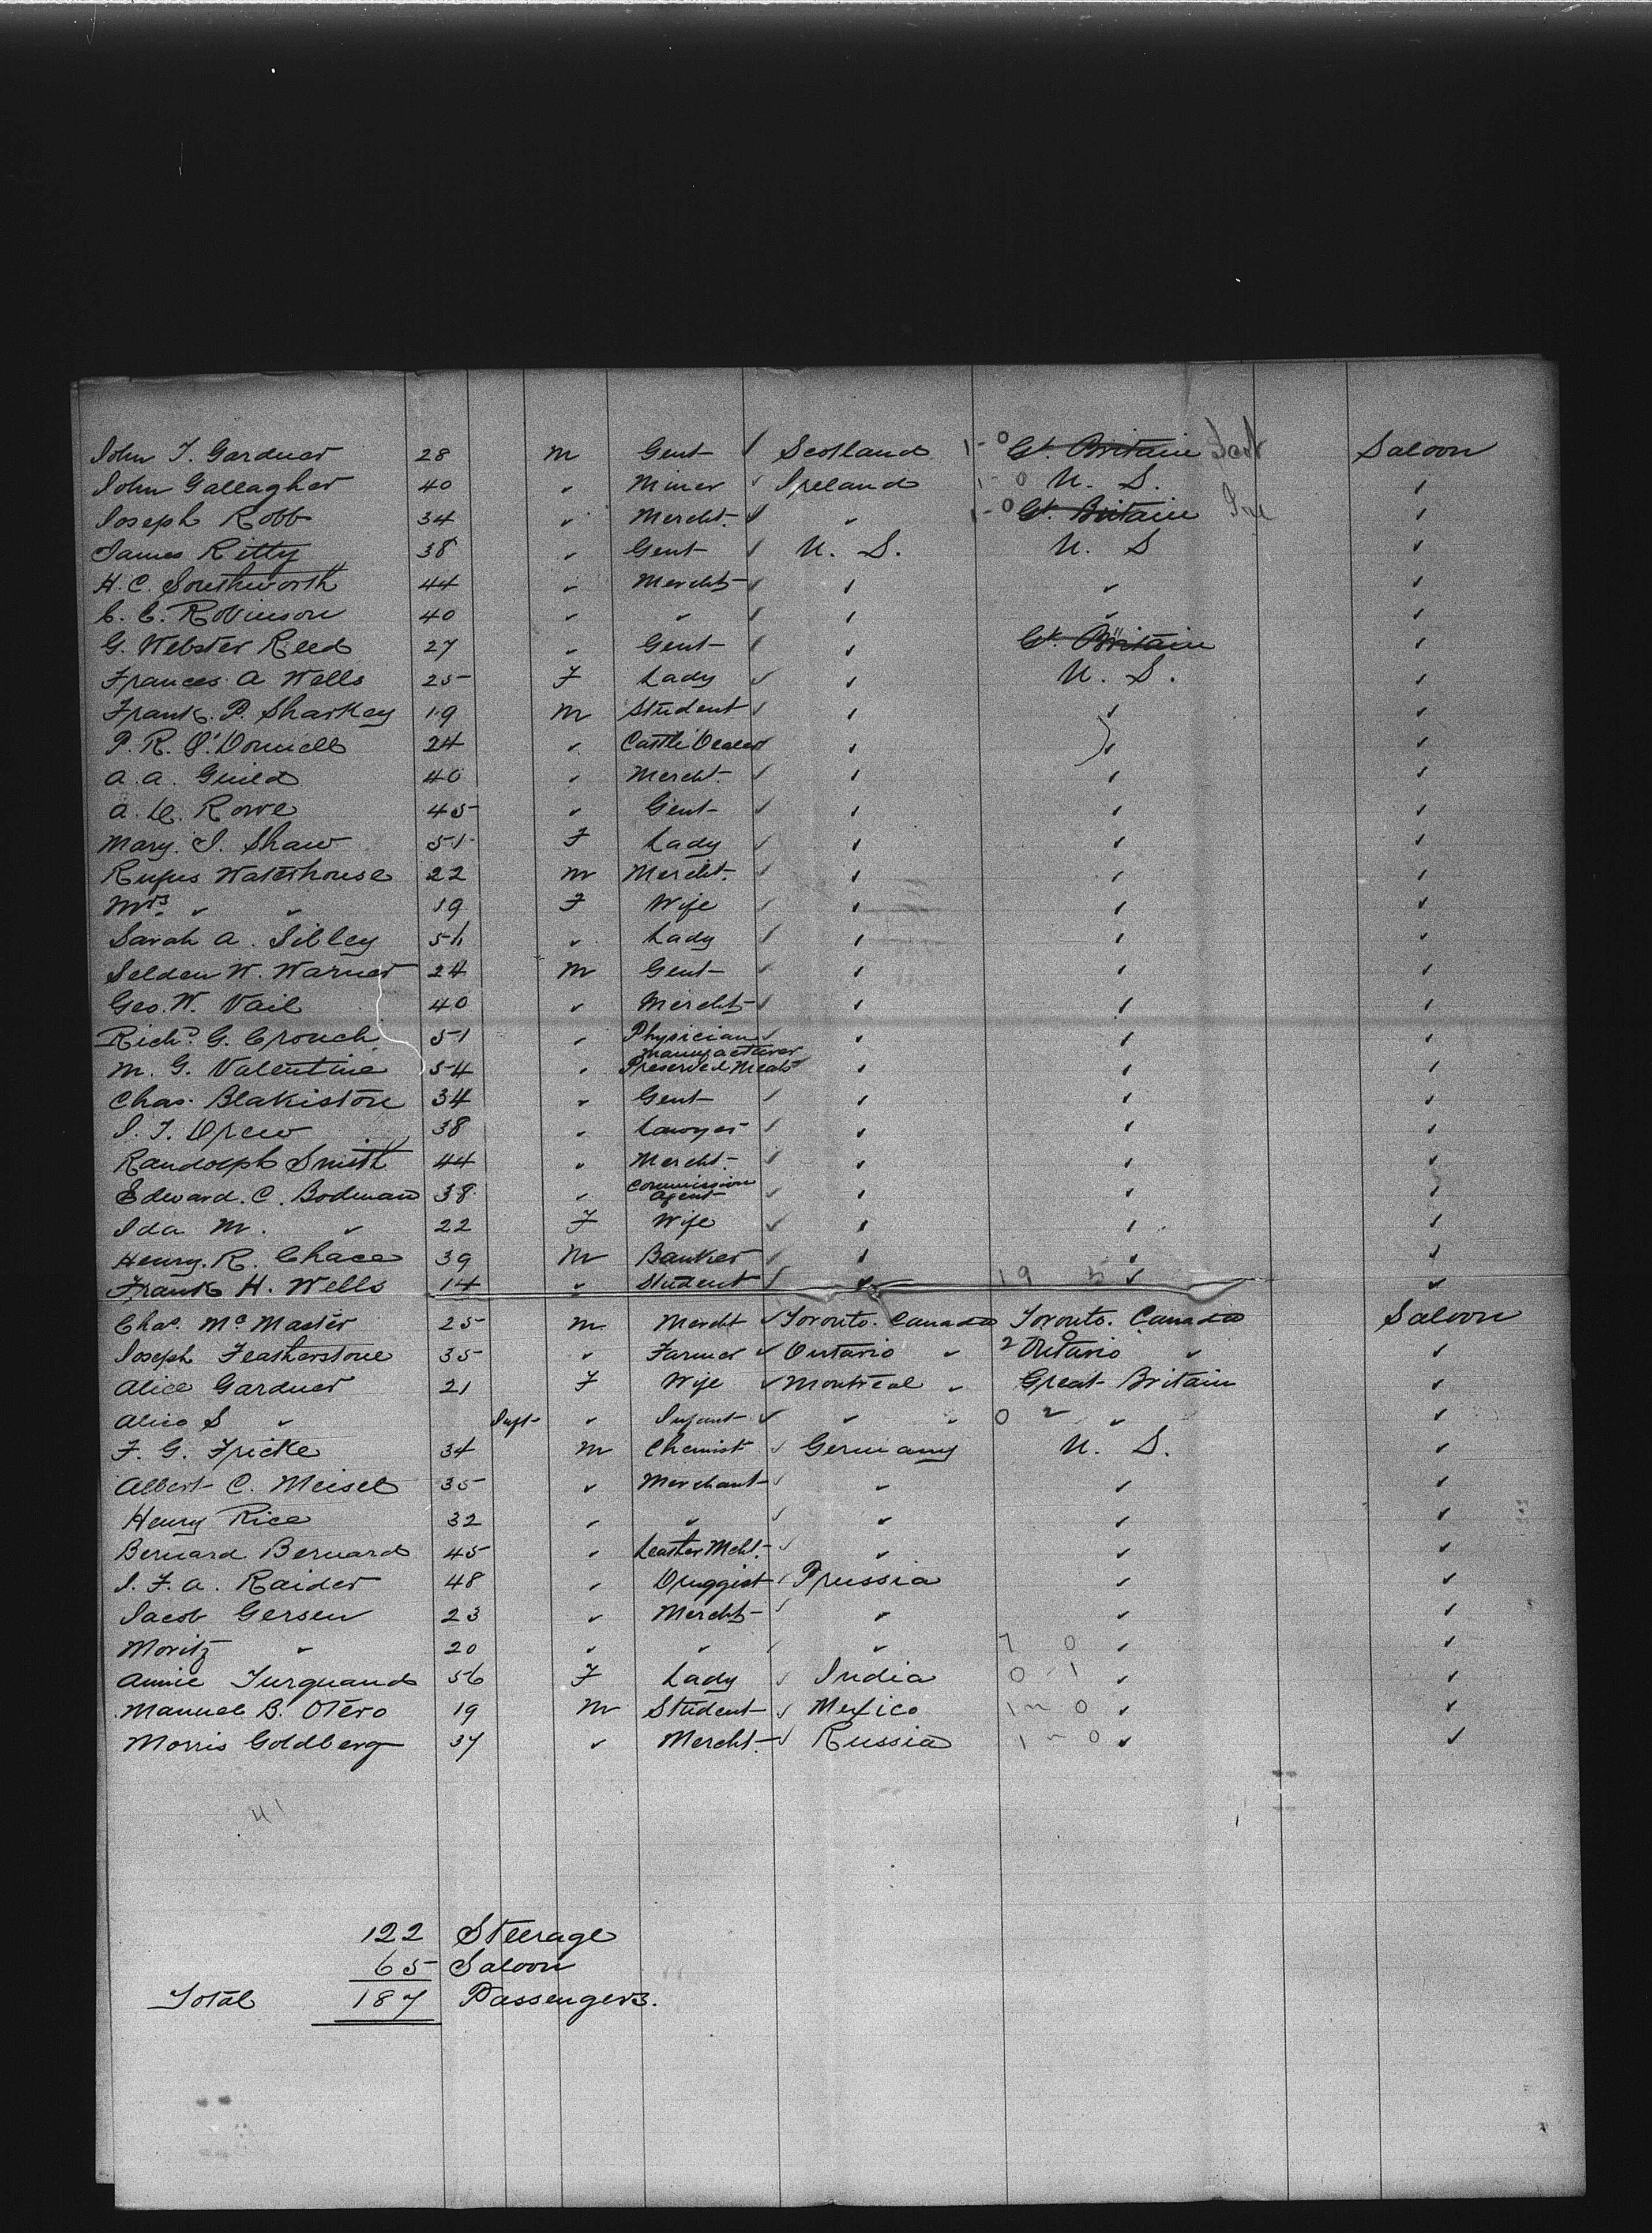 John T. Gardner 28 M Gent ✓ Scotland 1-0 Gt. Britain Scot Saloon
John Gallagher 40 " Miner ✓ Ireland 1-0 U. S. "
Joseph Robb 34 " Mercht. ✓ " 1-0 Gt. Britain Ire "
James Ritty 38 " Gent ✓ U. S. U. S "
H. C. Southworth 44 " Mercht ✓ " " "
C. C. Robinson 40 " " ✓ " " "
G. Webster Reed 27 " Gent ✓ " Gt. Britain "
Frances A Wells 25 F Lady ✓ " U. S. "
Frank. P. Sharkey 19 M Student ✓ " " "
P. R. O'Donnell 24 " Cattle Dealer " " "
A. A. Guild 40 " Mercht. ✓ " " "
A. Rowe 45 " Gent ✓ " " "
Mary. J. Shaw 51 F Lady ✓ " " "
Rufus Waterhouse 22 M Mercht. ✓ " " "
Mrs. " " 19 F Wife ✓ " " "
Sarah A. Sibley 51 " Lady ✓ " " "
Selden W. Warner 24 M Gent ✓ " " "
Geo. W. Vail 40 " Mercht ✓ " " "
Richd. G. Crouch 51 " Physician ✓ " " "
M. G. Valentine 54 " Manufacturer Preserved Meats " " "
Chas. Blakistone 34 " Gent ✓ " " "
J. T. Drew 38 " Lawyer ✓ " " "
Randolph Smith 44 " Mercht. ✓ " " "
Edward. C. Bodman 38 " Commission Agent ✓ " " "
Ida M. " 22 F Wife ✓ " " "
Henry. R. Chace 39 M Banker ✓ " " "
Frank H. Wells 14 " Student ✓ " 19 5 " "
Chas. McMaster 25 M Mercht ✓ Toronto. Canada Toronto. Canada Saloon
Joseph Featherstone 35 " Farmer ✓ Ontario " 2 0 Ontario " "
Alice Gardner 21 F Wife ✓ Montreal " Great Britain "
Alice S " Inft " Infant ✓ " " 0 2 " "
F. G. Fricke 34 M Chemist ✓ Germany U. S. "
Albert C. Meisel 35 " Merchant ✓ " " "
Henry Rice 32 " " ✓ " " "
Bernard Bernard 45 " Leather Mcht. ✓ " " "
J. F. A. Raider 48 " Druggist ✓ Prussia " "
Jacob Gersen 23 " Mercht ✓ " " "
Moritz " 20 " " ✓ " 7 0 " "
Annie Turquand 56 F Lady ✓ India 0-1 " "
Manuel B. Otero 19 M Student ✓ Mexico 1-0 " "
Morris Goldberg 37 " Mercht. ✓ Russia 1-0 " "
41
122 Steerage
65 Saloon
Total 187 Passengers.